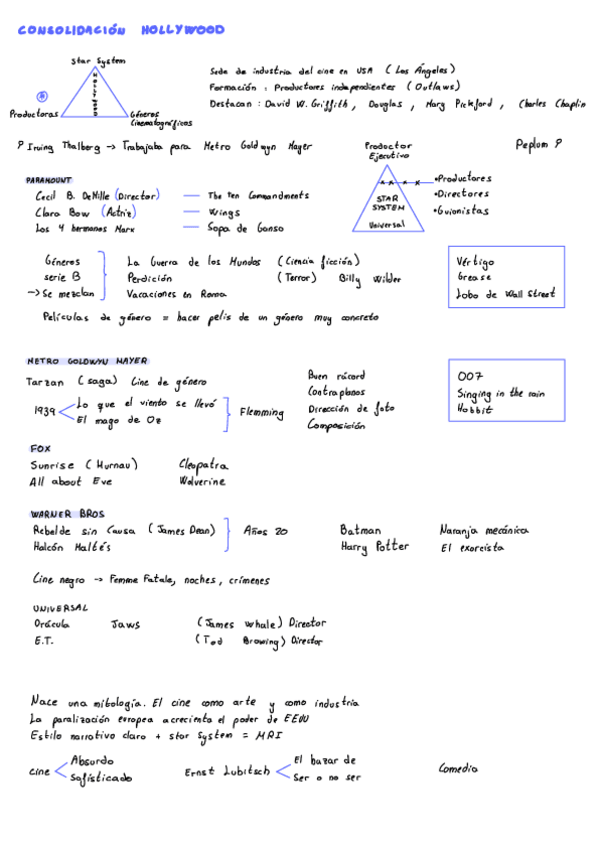 CONSOLIDACIÓN HOLLYWOOD
Star System
HOLLYWOOD
Productoras
Géneros
Cinematográficos
Sede de industria del cine en USA (Los Ángeles)
Formación : Productores independientes (Outlaws)
Destacan : David W. Griffith, Douglas, Mary Pickford, Charles Chaplin
Irving Thalberg → Trabajaba para Metro Goldwyn Mayer
Productor
Ejecutivo
STAR
SYSTEM
Universal
•Productores
•Directores
•Guionistas
Peplum
PARAMOUNT
Cecil B. DeMille (Director) — The Ten Commandments
Clara Bow (Actriz) — Wings
Los 4 hermanos Marx — Sopa de Ganso
Géneros
serie B
→ Se mezclan
La Guerra de los Mundos (Ciencia ficción)
Perdición (Terror) Billy Wilder
Vacaciones en Roma
Vértigo
Grease
Lobo de Wall Street
Películas de género = hacer pelis de un género muy concreto
METRO GOLDWYN MAYER
Tarzan (saga) Cine de género
1939
Lo que el viento se llevó
El mago de Oz
Flemming
Buen rácord
Contraplanos
Dirección de foto
Composición
007
Singing in the rain
Hobbit
FOX
Sunrise (Murnau) Cleopatra
All about Eve Wolverine
WARNER BROS
Rebelde sin Causa (James Dean)
Halcón Maltés
Años 20
Batman
Harry Potter
Naranja mecánica
El exorcista
Cine negro → Femme Fatale, noches, crímenes
UNIVERSAL
Drácula Jaws (James Whale) Director
E.T. (Tod Browing) Director
Nace una mitología. El cine como arte y como industria
La paralización europea acrecienta el poder de EEUU
Estilo narrativo claro + star system = MRI
cine
Absurdo
Sofisticado
Ernst Lubitsch
El bazar de
Ser o no ser
Comedia